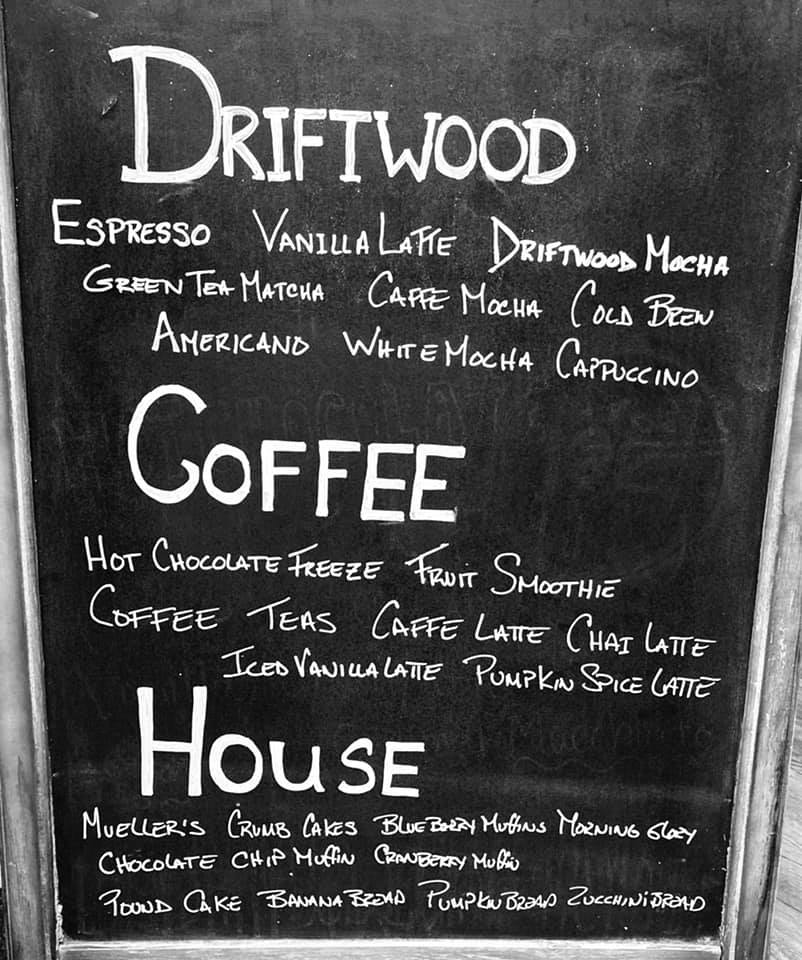 DRIFTWOOD
ESPRESSO VANILLA LATTE DRIFTWOOD MOCHA
GREEN TEA MATCHA CAFFE MOCHA COLD BREW
AMERICANO WHITE MOCHA CAPPUCCINO
COFFEE
HOT CHOCOLATE FREEZE FRUIT SMOOTHIE
COFFEE TEAS CAFFE LATTE CHAI LATTE
ICED VANILLA LATTE PUMPKIN SPICE LATTE
HOUSE
MUELLER'S CRUMB CAKES BLUE BERRY MUFFINS MORNING GLORY
CHOCOLATE CHIP MUFFIN CRANBERRY MUFFIN
POUND CAKE BANANA BREAD PUMPKIN BREAD ZUCCHINI BREAD